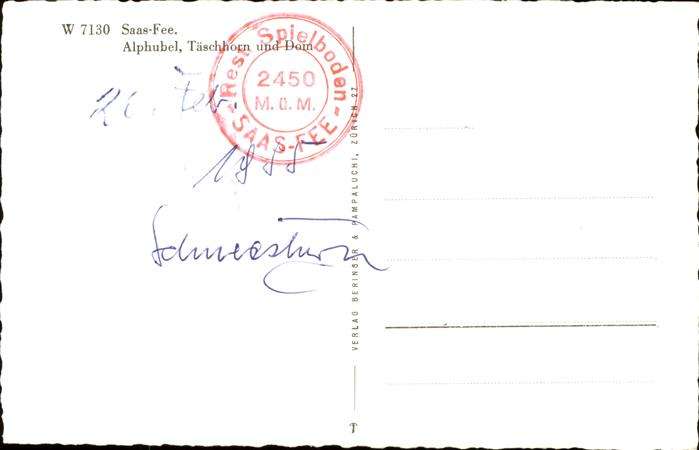 W 7130 Saas-Fee.
Alphubel, Täschhorn und Dom
Rest. Spielboden
2450
M.ü.M.
- SAAS-FEE -
Feb.
1955
Schneesturm
VERLAG BERINGER & PAMPALUCHI, ZÜRICH 27